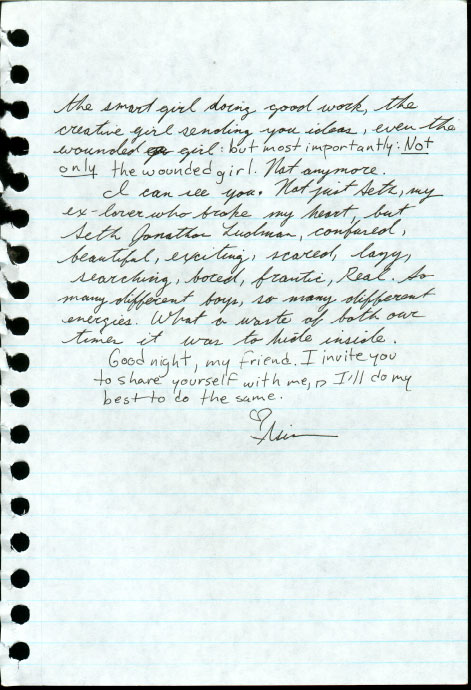 the smart girl doing good work, the
creative girl sending you ideas, even the
wounded girl: but most importantly: Not
only the wounded girl. Not anymore.
I can see you. Not just Seth, my
ex-lover who broke my heart, but
Seth Jonathan, confused,
beautiful, exciting, scared, lazy,
searching, bored, frantic, Real. So
many different boys, so many different
energies. What a waste of both our
times it was to hide inside.
Good night, my friend. I invite you
to share yourself with me, I'll do my
best to do the same.